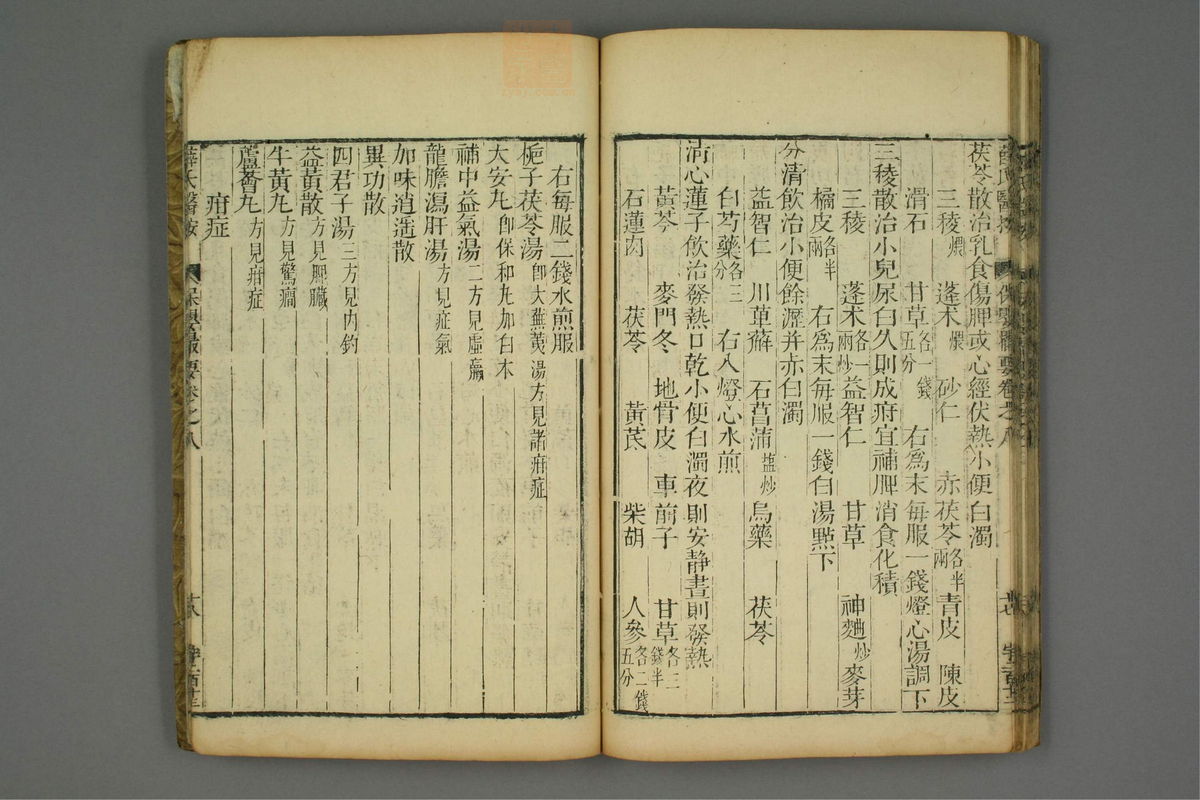 茯苓散治乳食傷脾或心經伏熱小便白濁
三稜煨 蓬朮煨 砂仁 赤茯苓各半兩 青皮 陳皮
滑石 甘草各一錢五分 右爲末每服一錢燈心湯調下
三稜散治小兒尿白久則成疳宜補脾消食化積
三稜 蓬朮各一兩炒 益智仁 甘草 神麯炒 麥芽
橘皮各半兩 右爲末每服一錢白湯點下
分清飲治小便餘瀝并赤白濁
益智仁 川萆薢 石菖蒲鹽炒 烏藥 茯苓
白芍藥各三分 右入燈心水煎
清心蓮子飲治發熱口乾小便白濁夜則安靜晝則發熱
黃芩 麥門冬 地骨皮 車前子 甘草各二錢半
石蓮肉 茯苓 黃芪 柴胡 人參各二錢五分
右每服二錢水煎服
梔子茯苓湯卽大蕪荑湯方見諸疳症
大安丸卽保和丸加白朮
補中益氣湯二方見虛羸
龍膽瀉肝湯方見疝氣
加味逍遥散
異功散
四君子湯三方見内釣
益黃散方見脾臟
牛黃丸方見驚癎
蘆薈丸方見疳症
疳症
薛氏醫按 保嬰撮要卷之八